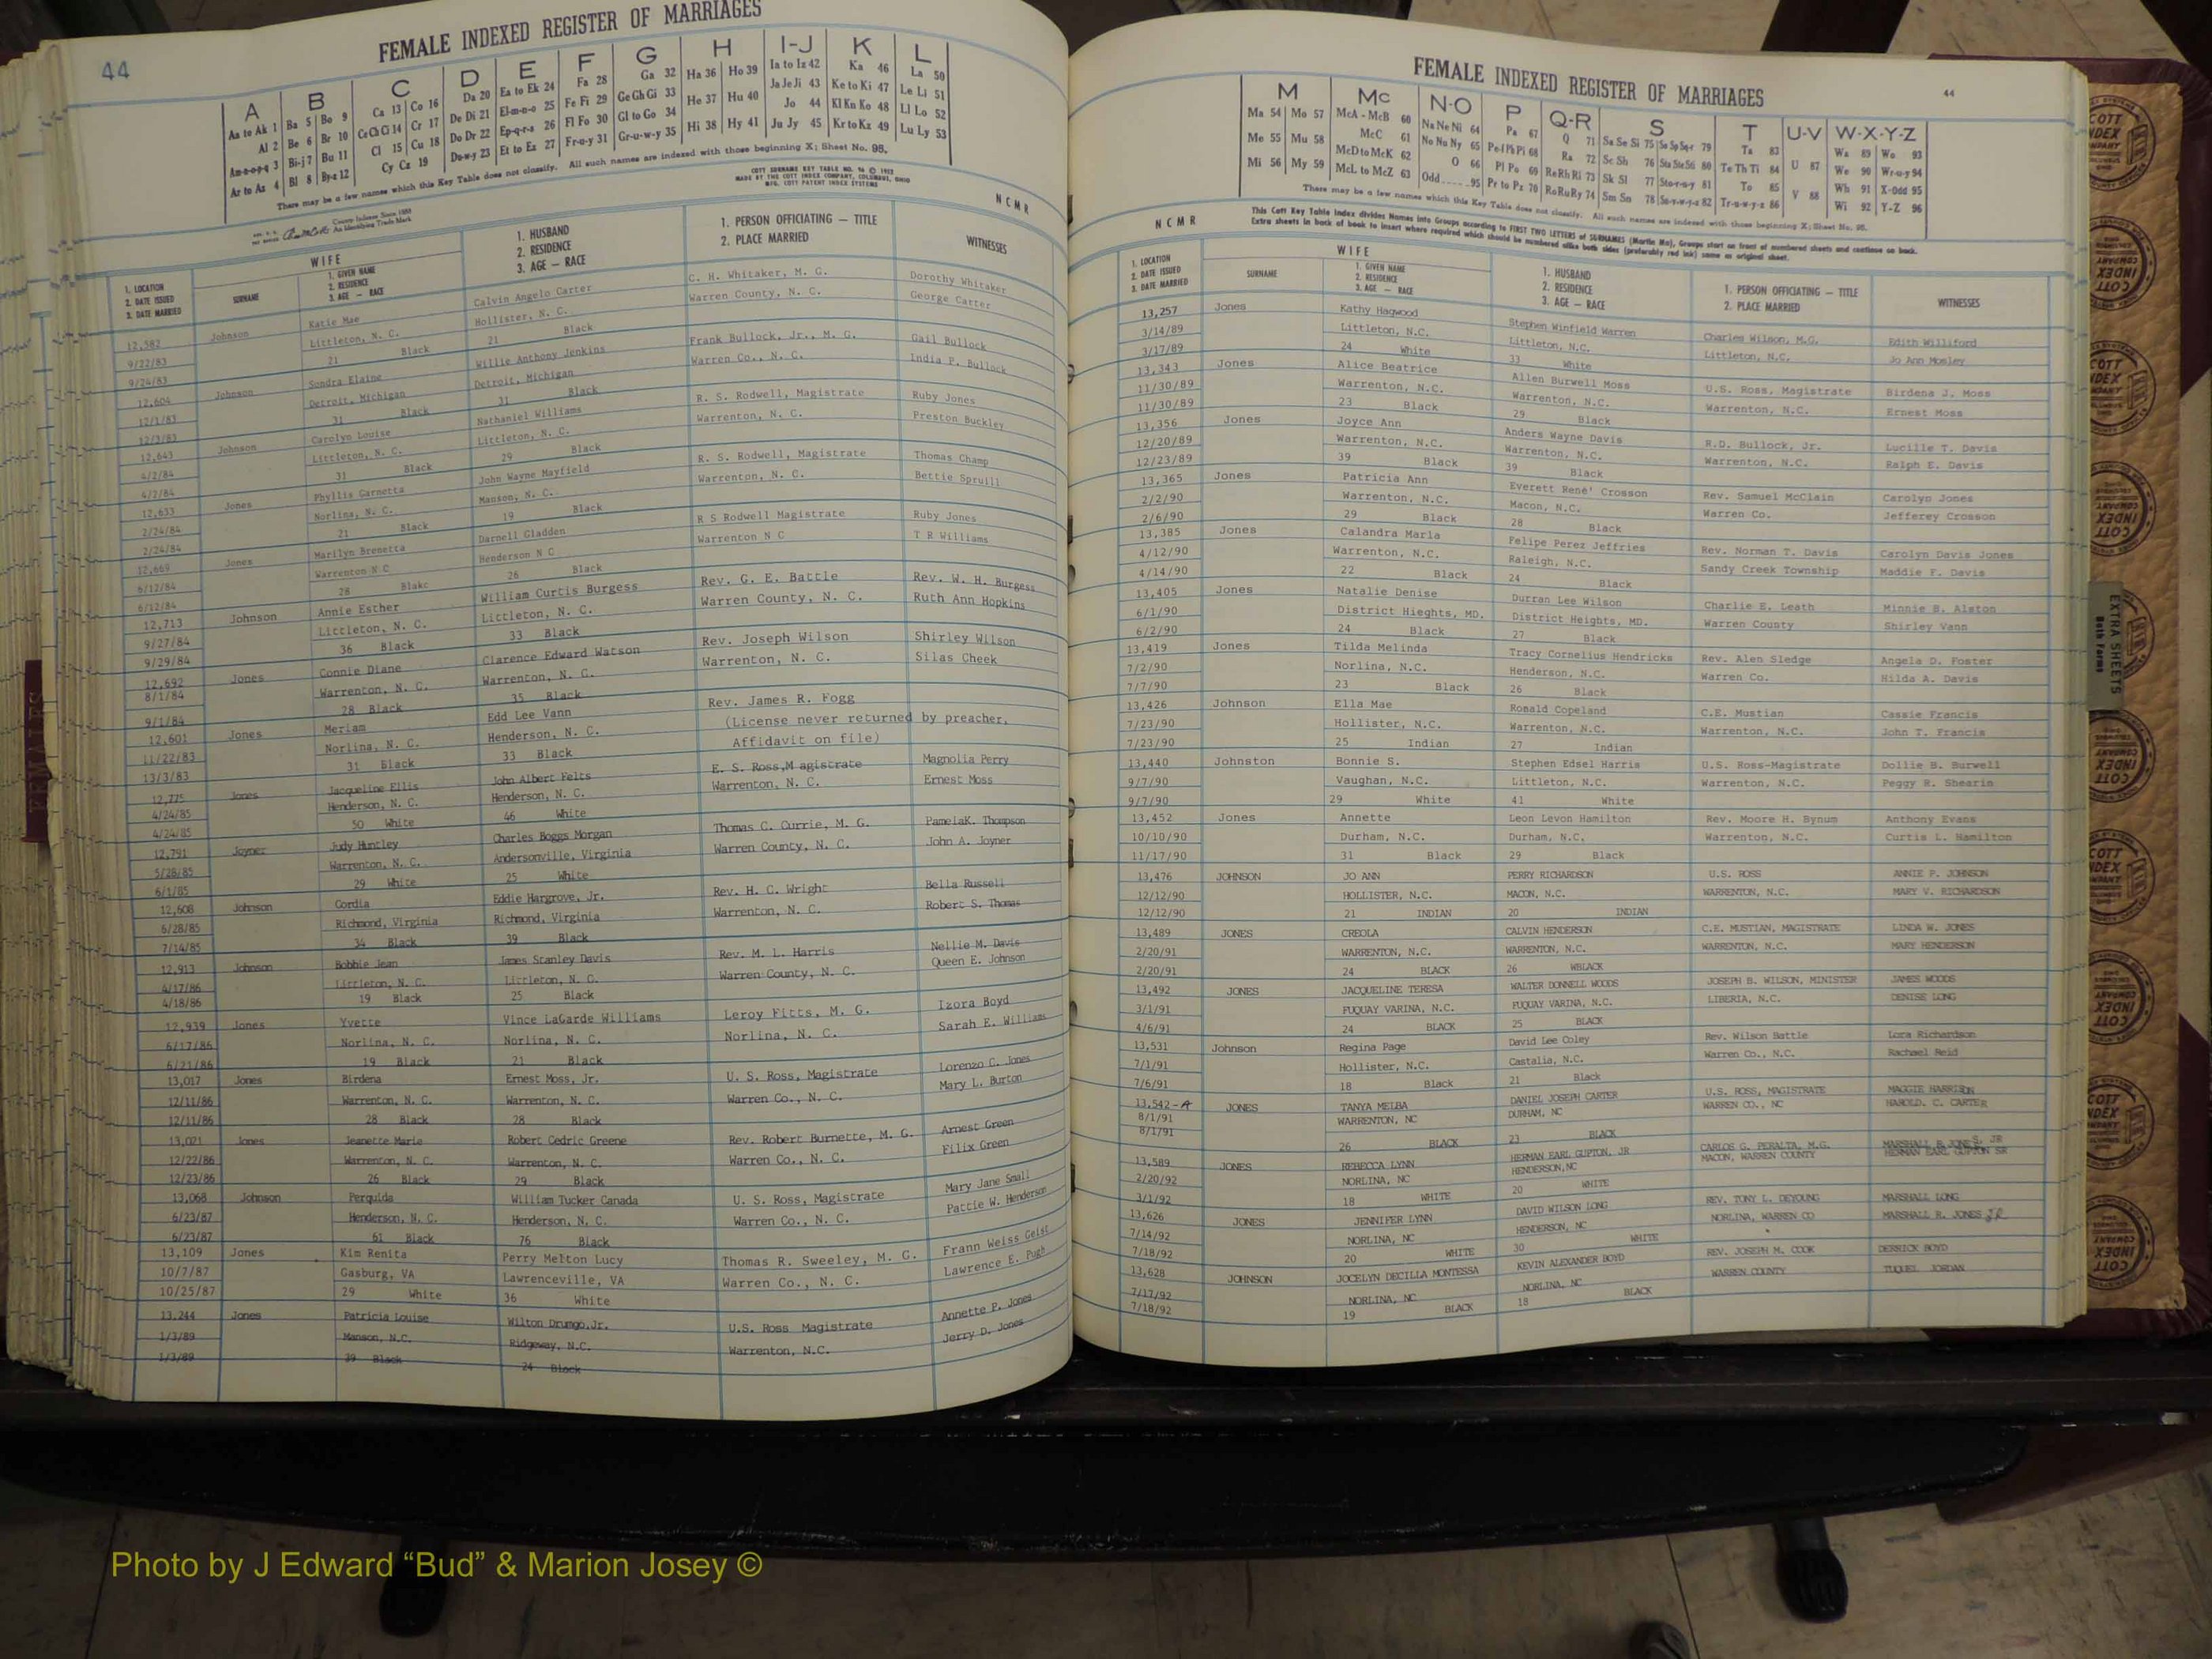 44
FEMALE INDEXED REGISTER OF MARRIAGES
A B C D E F G H I-J K L
Aa to Ak 1 Ba 5 Bo 9 Ca 13 Co 16 Da 20 Ea to Ek 24 Fa 28 Ga 32 Ha 36 Ho 39 Ia to Iz 42 Ka 46 La 50
Al 2 Be 6 Br 10 Ce Ch Ci 14 Cr 17 De Di 21 El-m-n-o 25 Fe Fi 29 Ge Gh Gi 33 He 37 Hu 40 Ja Je Ji 43 Ke to Ki 47 Le Li 51
Am-n-o-p-q 3 Bi-j 7 Bu 11 Cl 15 Cu 18 Do Dr 22 Ep-q-r-s 26 Fl Fo 30 Gl to Go 34 Hi 38 Hy 41 Jo 44 Kl Kn Ko 48 Ll Lo 52
Ar to Az 4 Bl 8 By-z 12 Cy Cz 19 Du-w-y 23 Et to Ez 27 Fr-u-y 31 Gr-u-w-y 35 Ju Jy 45 Kr to Kz 49 Lu Ly 53
There may be a few names which this Key Table does not classify. All such names are indexed with those beginning X; Sheet No. 95.
COTT SURNAME KEY TABLE NO.
MADE BY THE COTT INDEX COMPANY, COLUMBUS, OHIO
County Indexes Since 1888
An Identifying Trade Mark
NCMR
1. LOCATION
2. DATE ISSUED
3. DATE MARRIED
WIFE
SURNAME
1. GIVEN NAME
2. RESIDENCE
3. AGE — RACE
1. HUSBAND
2. RESIDENCE
3. AGE — RACE
1. PERSON OFFICIATING — TITLE
2. PLACE MARRIED
WITNESSES
12,582 Johnson Katie Mae Calvin Angelo Carter C. H. Whitaker, M. G. Dorothy Whitaker
9/22/83 Littleton, N. C. Hollister, N. C. Warren County, N. C. George Carter
9/24/83 21 Black 21 Black
12,604 Johnson Sondra Elaine Willie Anthony Jenkins Frank Bullock, Jr., M. G. Gail Bullock
12/1/83 Detroit, Michigan Detroit, Michigan Warren Co., N. C. India P. Bullock
12/3/83 31 Black 31 Black
12,643 Johnson Carolyn Louise Nathaniel Williams R. S. Rodwell, Magistrate Ruby Jones
4/2/84 Littleton, N. C. Littleton, N. C. Warrenton, N. C. Preston Buckley
4/2/84 31 Black 29 Black
12,633 Jones Phyllis Garnetta John Wayne Mayfield R. S. Rodwell, Magistrate Thomas Champ
2/24/84 Norlina, N. C. Manson, N. C. Warrenton, N. C. Bettie Spruill
2/24/84 21 Black 19 Black
12,669 Jones Marilyn Brenetta Darnell Gladden R S Rodwell Magistrate Ruby Jones
6/12/84 Warrenton N C Henderson N C Warrenton N C T R Williams
6/12/84 28 Blakc 26 Black
12,713 Johnson Annie Esther William Curtis Burgess Rev. G. E. Battle Rev. W. H. Burgess
9/27/84 Littleton, N. C. Littleton, N. C. Warren County, N. C. Ruth Ann Hopkins
9/29/84 36 Black 33 Black
12,692 Jones Connie Diane Clarence Edward Watson Rev. Joseph Wilson Shirley Wilson
8/1/84 Warrenton, N. C. Warrenton, N. C. Warrenton, N. C. Silas Cheek
9/1/84 28 Black 35 Black
12,601 Jones Meriam Edd Lee Vann Rev. James R. Fogg
11/22/83 Norlina, N. C. Henderson, N. C. (License never returned by preacher,
13/3/83 31 Black 33 Black Affidavit on file)
12,775 Jones Jacqueline Ellis John Albert Felts E. S. Ross,M agistrate Magnolia Perry
4/24/85 Henderson, N. C. Henderson, N. C. Warrenton, N. C. Ernest Moss
4/24/85 50 White 46 White
12,791 Joyner Judy Huntley Charles Boggs Morgan Thomas C. Currie, M. G. PamelaK. Thompson
5/28/85 Warrenton, N. C. Andersonville, Virginia Warren County, N. C. John A. Joyner
6/1/85 29 White 25 White
12,608 Johnson Cordia Eddie Hargrove, Jr. Rev. H. C. Wright Bella Russell
6/28/85 Richmond, Virginia Richmond, Virginia Warrenton, N. C. Robert S. Thomas
7/14/85 34 Black 39 Black
12,913 Johnson Bobbie Jean James Stanley Davis Rev. M. L. Harris Nellie M. Davis
4/17/86 Littleton, N. C. Littleton, N. C. Warren County, N. C. Queen E. Johnson
4/18/86 19 Black 25 Black
12,939 Jones Yvette Vince LaGarde Williams Leroy Fitts, M. G. Izora Boyd
6/17/86 Norlina, N. C. Norlina, N. C. Norlina, N. C. Sarah E. Williams
6/21/86 19 Black 21 Black
13,017 Jones Birdena Ernest Moss, Jr. U. S. Ross, Magistrate Lorenzo C. Jones
12/11/86 Warrenton, N. C. Warrenton, N. C. Warren Co., N. C. Mary L. Burton
12/11/86 28 Black 28 Black
13,021 Jones Jeanette Marie Robert Cedric Greene Rev. Robert Burnette, M. G. Arnest Green
12/22/86 Warrenton, N. C. Warrenton, N. C. Warren Co., N. C. Filix Green
12/23/86 26 Black 29 Black
13,068 Johnson Perquida William Tucker Canada U. S. Ross, Magistrate Mary Jane Small
6/23/87 Henderson, N. C. Henderson, N. C. Warren Co., N. C. Pattie W. Henderson
6/23/87 61 Black 76 Black
13,109 Jones Kim Renita Perry Melton Lucy Thomas R. Sweeley, M. G. Frann Weiss Geist
10/7/87 Gasburg, VA Lawrenceville, VA Warren Co., N. C. Lawrence E. Pugh
10/25/87 29 White 36 White
13.244 Jones Patricia Louise Wilton Drumgo,Jr. U.S. Ross Magistrate Annette P. Jones
1/3/89 Manson, N.C. Ridgeway, N.C. Warrenton, N.C. Jerry D. Jones
1/3/89 39 Black 24 Black
FEMALE INDEXED REGISTER OF MARRIAGES
44
M Mc N-O P Q-R S T U-V W-X-Y-Z
Ma 54 Mo 57 McA - McB 60 Na Ne Ni 64 Pa 67 Q 71 Sa Se Si 75 So Sp Sq-r 79 Ta 83 U 87 Wa 89 Wo 93
Me 55 Mu 58 McC 61 No Nu Ny 65 Pe-f Ph Pi 68 Ra 72 Sc Sh 76 Sta Ste Sti 80 Te Th Ti 84 V 88 We 90 Wr-u-y 94
Mi 56 My 59 McD to McK 62 O 66 Pl Po 69 Re Rh Ri 73 Sk Sl 77 Sto-r-u-y 81 To 85 Wh 91 X-Odd 95
McL to McZ 63 Odd 95 Pr to Pz 70 Ro Ru Ry 74 Sm Sn 78 Su-v-w-y-z 82 Tr-u-w-y-z 86 Wi 92 Y-Z 96
There may be a few names which this Key Table does not classify. All such names are indexed with those beginning X; Sheet No. 95.
This Cott Key Table Index divides Names into Groups according to FIRST TWO LETTERS of SURNAMES (Martin Ma), Groups start on front of numbered sheets and continue on back.
Extra sheets in back of book to insert where required which should be numbered alike both sides (preferably red ink) same as original sheet.
NCMR
1. LOCATION
2. DATE ISSUED
3. DATE MARRIED
WIFE
SURNAME
1. GIVEN NAME
2. RESIDENCE
3. AGE — RACE
1. HUSBAND
2. RESIDENCE
3. AGE — RACE
1. PERSON OFFICIATING — TITLE
2. PLACE MARRIED
WITNESSES
13,257 Jones Kathy Hagwood Stephen Winfield Warren Charles Wilson, M.G. Edith Williford
3/14/89 Littleton, N.C. Littleton, N.C. Littleton, N.C. Jo Ann Mosley
3/17/89 24 White 33 White
13,343 Jones Alice Beatrice Allen Burwell Moss U.S. Ross, Magistrate Birdena J. Moss
11/30/89 Warrenton, N.C. Warrenton, N.C. Warrenton, N.C. Ernest Moss
11/30/89 23 Black 29 Black
13,356 Jones Joyce Ann Anders Wayne Davis R.D. Bullock, Jr. Lucille T. Davis
12/20/89 Warrenton, N.C. Warrenton, N.C. Warrenton, N.C. Ralph E. Davis
12/23/89 39 Black 39 Black
13,365 Jones Patricia Ann Everett Rene' Crosson Rev. Samuel McClain Carolyn Jones
2/2/90 Warrenton, N.C. Macon, N.C. Warren Co. Jefferey Crosson
2/6/90 29 Black 28 Black
13,385 Jones Calandra Maria Felipe Perez Jeffries Rev. Norman T. Davis Carolyn Davis Jones
4/12/90 Warrenton, N.C. Raleigh, N.C. Sandy Creek Township Maddie F. Davis
4/14/90 22 Black 24 Black
13,405 Jones Natalie Denise Durran Lee Wilson Charlie E. Leath Minnie B. Alston
6/1/90 District Hieghts, MD. District Heights, MD. Warren County Shirley Vann
6/2/90 24 Black 27 Black
13,419 Jones Tilda Melinda Tracy Cornelius Hendricks Rev. Alen Sledge Angela D. Foster
7/2/90 Norlina, N.C. Henderson, N.C. Warren Co. Hilda A. Davis
7/7/90 23 Black 26 Black
13,426 Johnson Ella Mae Ronald Copeland C.E. Mustian Cassie Francis
7/23/90 Hollister, N.C. Warrenton, N.C. Warrenton, N.C. John T. Francis
7/23/90 25 Indian 27 Indian
13,440 Johnston Bonnie S. Stephen Edsel Harris U.S. Ross-Magistrate Dollie B. Burwell
9/7/90 Vaughan, N.C. Littleton, N.C. Warrenton, N.C. Peggy R. Shearin
9/7/90 29 White 41 White
13,452 Jones Annette Leon Levon Hamilton Rev. Moore H. Bynum Anthony Evans
10/10/90 Durham, N.C. Durham, N.C. Warrenton, N.C. Curtis L. Hamilton
11/17/90 31 Black 29 Black
13,476 JOHNSON JO ANN PERRY RICHARDSON U.S. ROSS ANNIE P. JOHNSON
12/12/90 HOLLISTER, N.C. MACON, N.C. WARRENTON, N.C. MARY V. RICHARDSON
12/12/90 21 INDIAN 20 INDIAN
13,489 JONES CREOLA CALVIN HENDERSON C.E. MUSTIAN, MAGISTRATE LINDA W. JONES
2/20/91 WARRENTON, N.C. WARRENTON, N.C. WARRENTON, N.C. MARY HENDERSON
2/20/91 24 BLACK 26 WBLACK
13,492 JONES JACQUELINE TERESA WALTER DONNELL WOODS JOSEPH B. WILSON, MINISTER JAMES WOODS
3/1/91 FUQUAY VARINA, N.C. FUQUAY VARINA, N.C. LIBERIA, N.C. DENISE LONG
4/6/91 24 BLACK 25 BLACK
13,531 Johnson Regina Page David Lee Coley Rev. Wilson Battle Lora Richardson
7/1/91 Hollister, N.C. Castalia, N.C. Warren Co., N.C. Rachael Reid
7/6/91 18 Black 21 Black
13,542-A JONES TANYA MELBA DANIEL JOSEPH CARTER U.S. ROSS, MAGISTRATE MAGGIE HARRISON
8/1/91 WARRENTON, NC DURHAM, NC WARREN CO., NC HAROLD. C. CARTER
8/1/91 26 BLACK 23 BLACK
13,589 JONES REBECCA LYNN HERMAN EARL GUPTON, JR CARLOS G. PERALTA, M.G. MARSHALL R JONES, JR
2/20/92 NORLINA, NC HENDERSON,NC MACON, WARREN COUNTY HERMAN EARL GUPTON SR
3/1/92 18 WHITE 20 WHITE
13,626 JONES JENNIFER LYNN DAVID WILSON LONG REV. TONY L. DEYOUNG MARSHALL LONG
7/14/92 NORLINA, NC HENDERSON, NC NORLINA, WARREN CO MARSHALL R. JONES JR
7/18/92 20 WHITE 30 WHITE
13,628 JOHNSON JOCELYN DECILLA MONTESSA KEVIN ALEXANDER BOYD REV. JOSEPH M. COOK DERRICK BOYD
7/17/92 NORLINA, NC NORLINA, NC WARREN COUNTY TUQUEL JORDAN
7/18/92 19 BLACK 18 BLACK
EXTRA SHEETS
Both Forms
FEMALES
Photo by J Edward “Bud” & Marion Josey ©